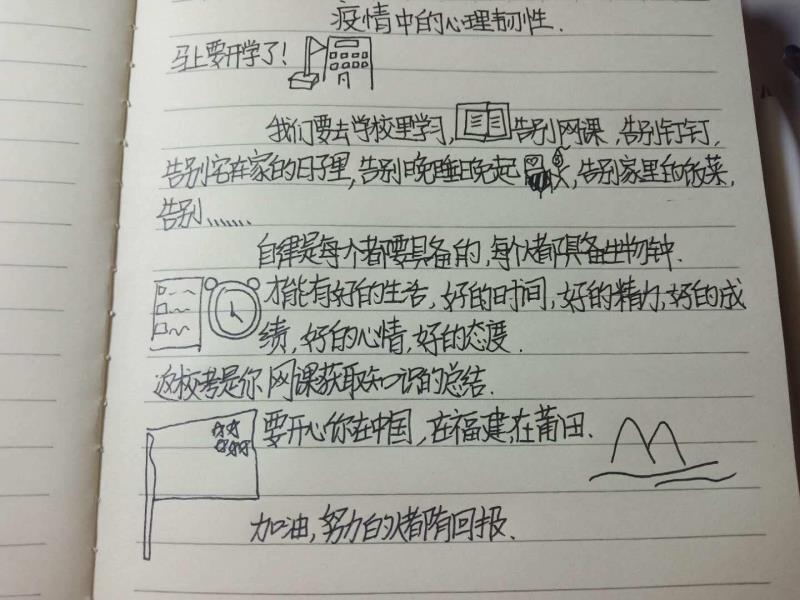 疫情中的心理韧性.
马上要开学了!
我们要去学校里学习,告别网课,告别钉钉,
告别宅在家的日子里,告别晚睡晚起,告别家里的饭菜,
告别……
自律是每个人都要具备的,每个人都具备生物钟.
才能有好的生活,好的时间,好的精力,好的成
绩,好的心情,好的态度.
返校考是你网课获取知识的总结.
要开心你在中国,在福建,在莆田.
加油,努力的人都有回报.